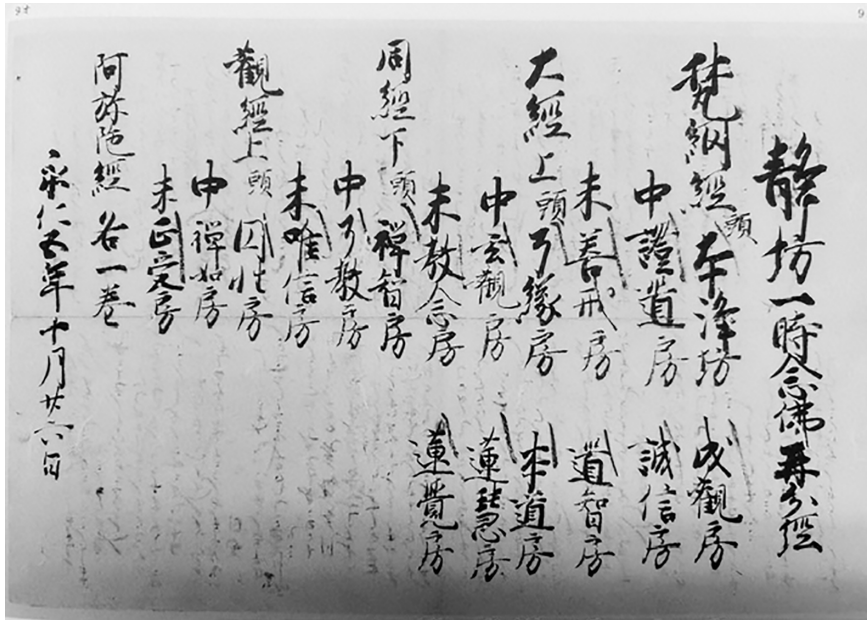 静坊一時念佛并分経
梵網経頭本浄坊 成觀房
中證道房 誠信房
末善戒房 道智房
大經上頭了縁房 本道房
中玄觀房 蓮慧房
末教念房 蓮覺房
同經下頭禅智房
中了教房
末唯信房
觀經上頭因性房
中禅如房
末正定房
阿弥陀経各一巻
永仁五年十月廿六日